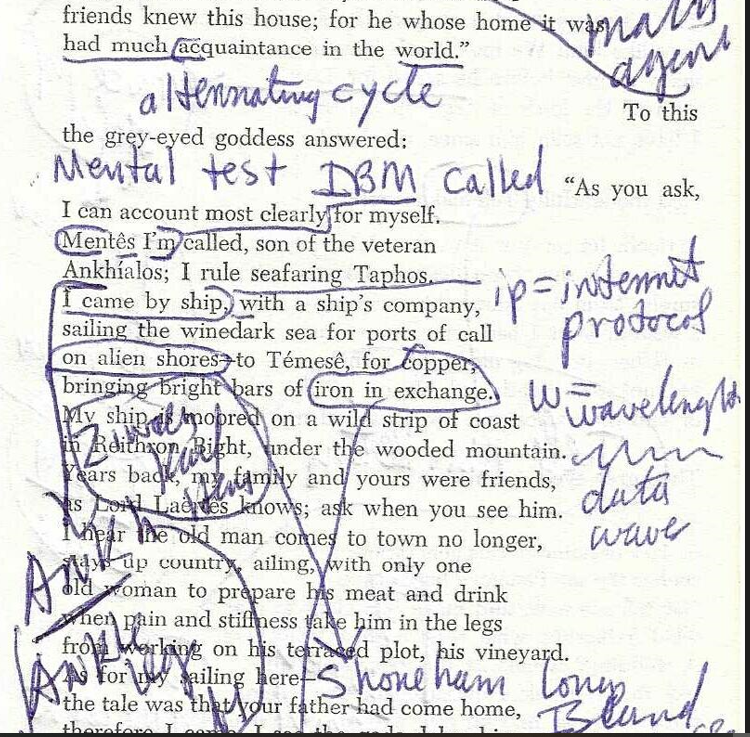 friends knew this house; for he whose home it was
had much acquaintance in the world.”
alternating cycle
To this
the grey-eyed goddess answered:
Mental test IBM called
“As you ask,
I can account most clearly for myself.
Mentês I'm called, son of the veteran
Ankhíalos; I rule seafaring Taphos.
I came by ship, with a ship's company,
ip = internet
protocol
sailing the winedark sea for ports of call
on alien shores—to Témesê, for copper,
bringing bright bars of iron in exchange.
w = wavelength
My ship is moored on a wild strip of coast
in Reithron Bight, under the wooded mountain.
Years back, my family and yours were friends,
data
wave
as Lord Laërtês knows; ask when you see him.
I hear the old man comes to town no longer,
stays up country, ailing, with only one
Ankh
old woman to prepare his meat and drink
when pain and stiffness take him in the legs
from working on his terraced plot, his vineyard.
Ankle
leg
As for my sailing here—
the tale was that your father had come home,
therefore I came. I see the gods